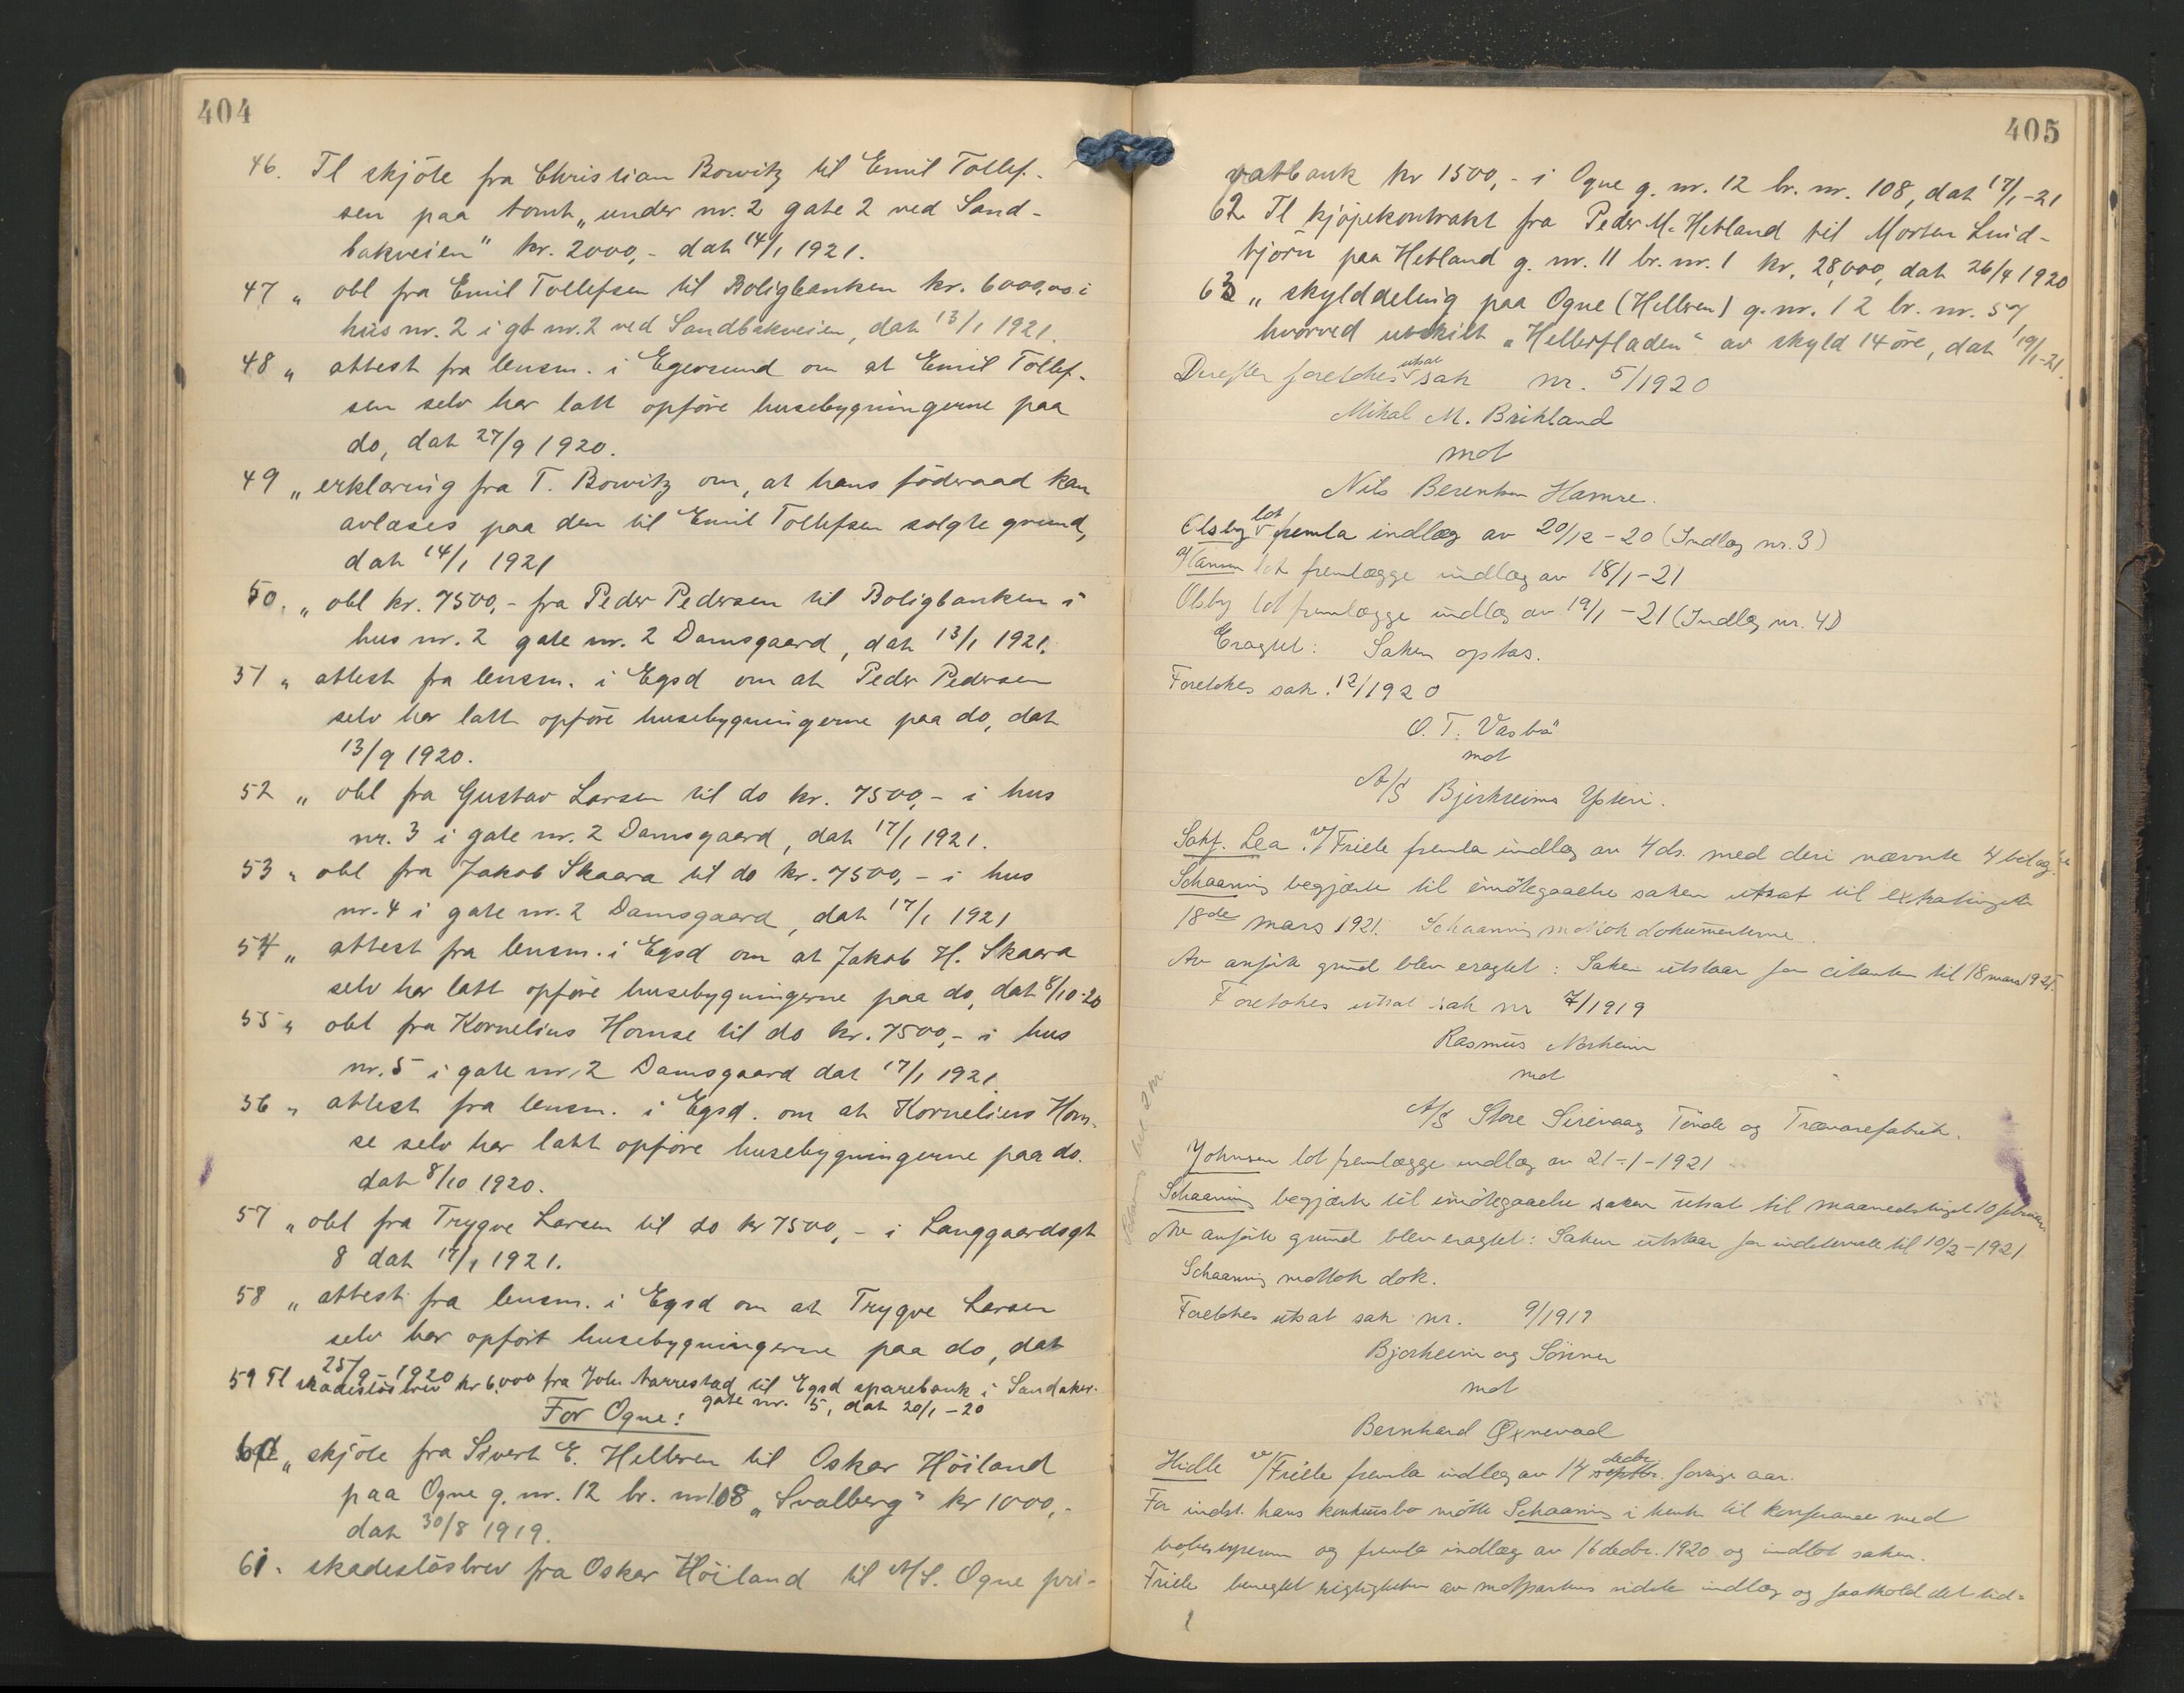 404
46. Tl skjöte fra Christian Bowitz til Emil Tollef-
sen paa tomt „under nr. 2 gate 2 ved Sand-
bakveien" kr. 2000,- dat 14/1 1921.
47 „ obl fra Emil Tollefsen til Boligbanken kr. 6000,00 i
hus nr. 2 i gt nr. 2 ved Sandbakveien, dat 13/1 1921.
48 „ attest fra lensm. i Egersund om at Emil Tollef-
sen selv har latt opföre husebygningerne paa
do, dat 27/9 1920.
49 „ erklæring fra T. Bowitz om, at hans föderaad kan
avlæses paa den til Emil Tollefsen solgte grund,
dat 14/1 1921
50. „ obl kr. 7500,- fra Peder Pedersen til Boligbanken i
hus nr. 2 gate nr. 2 Damsgaard, dat 13/1 1921.
51 „ attest fra lensm. i Egsd om at Peder Pedersen
selv har latt opföre husebygningerne paa do, dat
13/9 1920.
52 „ obl fra Gustav Larsen til do kr. 7500,- i hus
nr. 3 i gate nr. 2 Damsgaard, dat 17/1 1921.
53 „ obl fra Jakob Skaara til do kr. 7500,- i hus
nr. 4 i gate nr. 2 Damsgaard, dat 17/1 1921
54 „ attest fra lensm. i Egsd om at Jakob H. Skaara
selv har latt opföre husebygningerne paa do, dat 8/10-20
55 „ obl fra Kornelius Homse til do kr. 7500,- i hus
nr. 5 i gate nr. 2 Damsgaard dat 17/1 1921.
56 „ attest fra lensm. i Egsd. om at Kornelius Hom-
se selv har latt opföre husebygningerne paa do.
dat 8/10 1920.
57 „ obl fra Trygve Larsen til do kr 7500,- i Langgaardsgt
8 dat 17/1 1921.
58 „ attest fra lensm. i Egsd om at Trygve Larsen
selv har opfört husebygningerne paa do, dat
25/9-1920
59 Tl skadeslösbrev kr 6,000 fra John Narrestad til Egsd sparebank i Sandaker-
gate nr. 5, dat 20/1-20
For Ogne:
60 „ skjöte fra Sivert E. Hellren til Oskar Höiland
paa Ogne g. nr. 12 br. nr 108 „Svalberg" kr 1000,-
dat 30/8 1919.
61. skadeslösbrev fra Oskar Höiland til A/S. Ogne pri-
405
vatbank kr 1500,- i Ogne g. nr. 12 br. nr. 108, dat 17/1-21
62 Tl kjöpekontrakt fra Peder M. Hetland til Morten Lind-
tjörn paa Hetland g. nr. 11 br. nr. 1 kr. 28,000, dat 26/4 1920
63 „ skylddeling paa Ogne (Hellren) g. nr. 12 br. nr. 57
hvorved utskilt „Hellesfladen" av skyld 14 öre, dat 19/1-21.
Derefter foretokes utsat sak nr. 5/1920
Mikal M. Birkland
mot
Nils Berentsen Hamre.
Olsby lot fremla indlæg av 20/12-20 (Indlæg nr. 3)
Hamre lot fremlægge indlæg av 18/1-21
Olsby lot fremlægge indlæg av 19/1-21 (Indlæg nr. 4)
Eragtet: Saken optas.
Foretokes sak 12/1920
O. T. Vasbö
mot
A/S Bjerkreims Ysteri.
Sakf. Lea v/Friele fremla indlæg av 4 ds. med deri nævnte 4 bilag
Schaanning begjærte til imötegaaelse saken utsat til extratinget
18de mars 1921. Schaanning mottok dokumenterne.
Av anförte grund blev eragtet: Saken utstaar for citanten til 18 mars 1921.
Foretokes utsat sak nr 7/1919
Rasmus Norheim
mot
A/S Store Sirevaag Tönde og Trævarefabrik.
Johnsen lot fremlægge indlæg av 21-1-1921
Schaanning begjærte til imötegaaelse saken utsat til maanedstinget 10 februar
Av anförte grund blev eragtet: Saken utstaar for indstevnte til 10/2-1921
Schaanning mottok dok.
Foretokes utsat sak nr. 9/1919
Bjerkreim og Sönner
mot
Bernhard Öxnevad
Hidle v/Friele fremla indlæg av 14 decbr. forrige aar.
For indst. hans konkursbo mötte Schaanning i henh. til konferance med
bobestyreren og fremla indlæg av 16 decbr. 1920 og indlot saken.
Friele benegtet rigtigheten av motpartens sidste indlæg og fastholdt det tid-